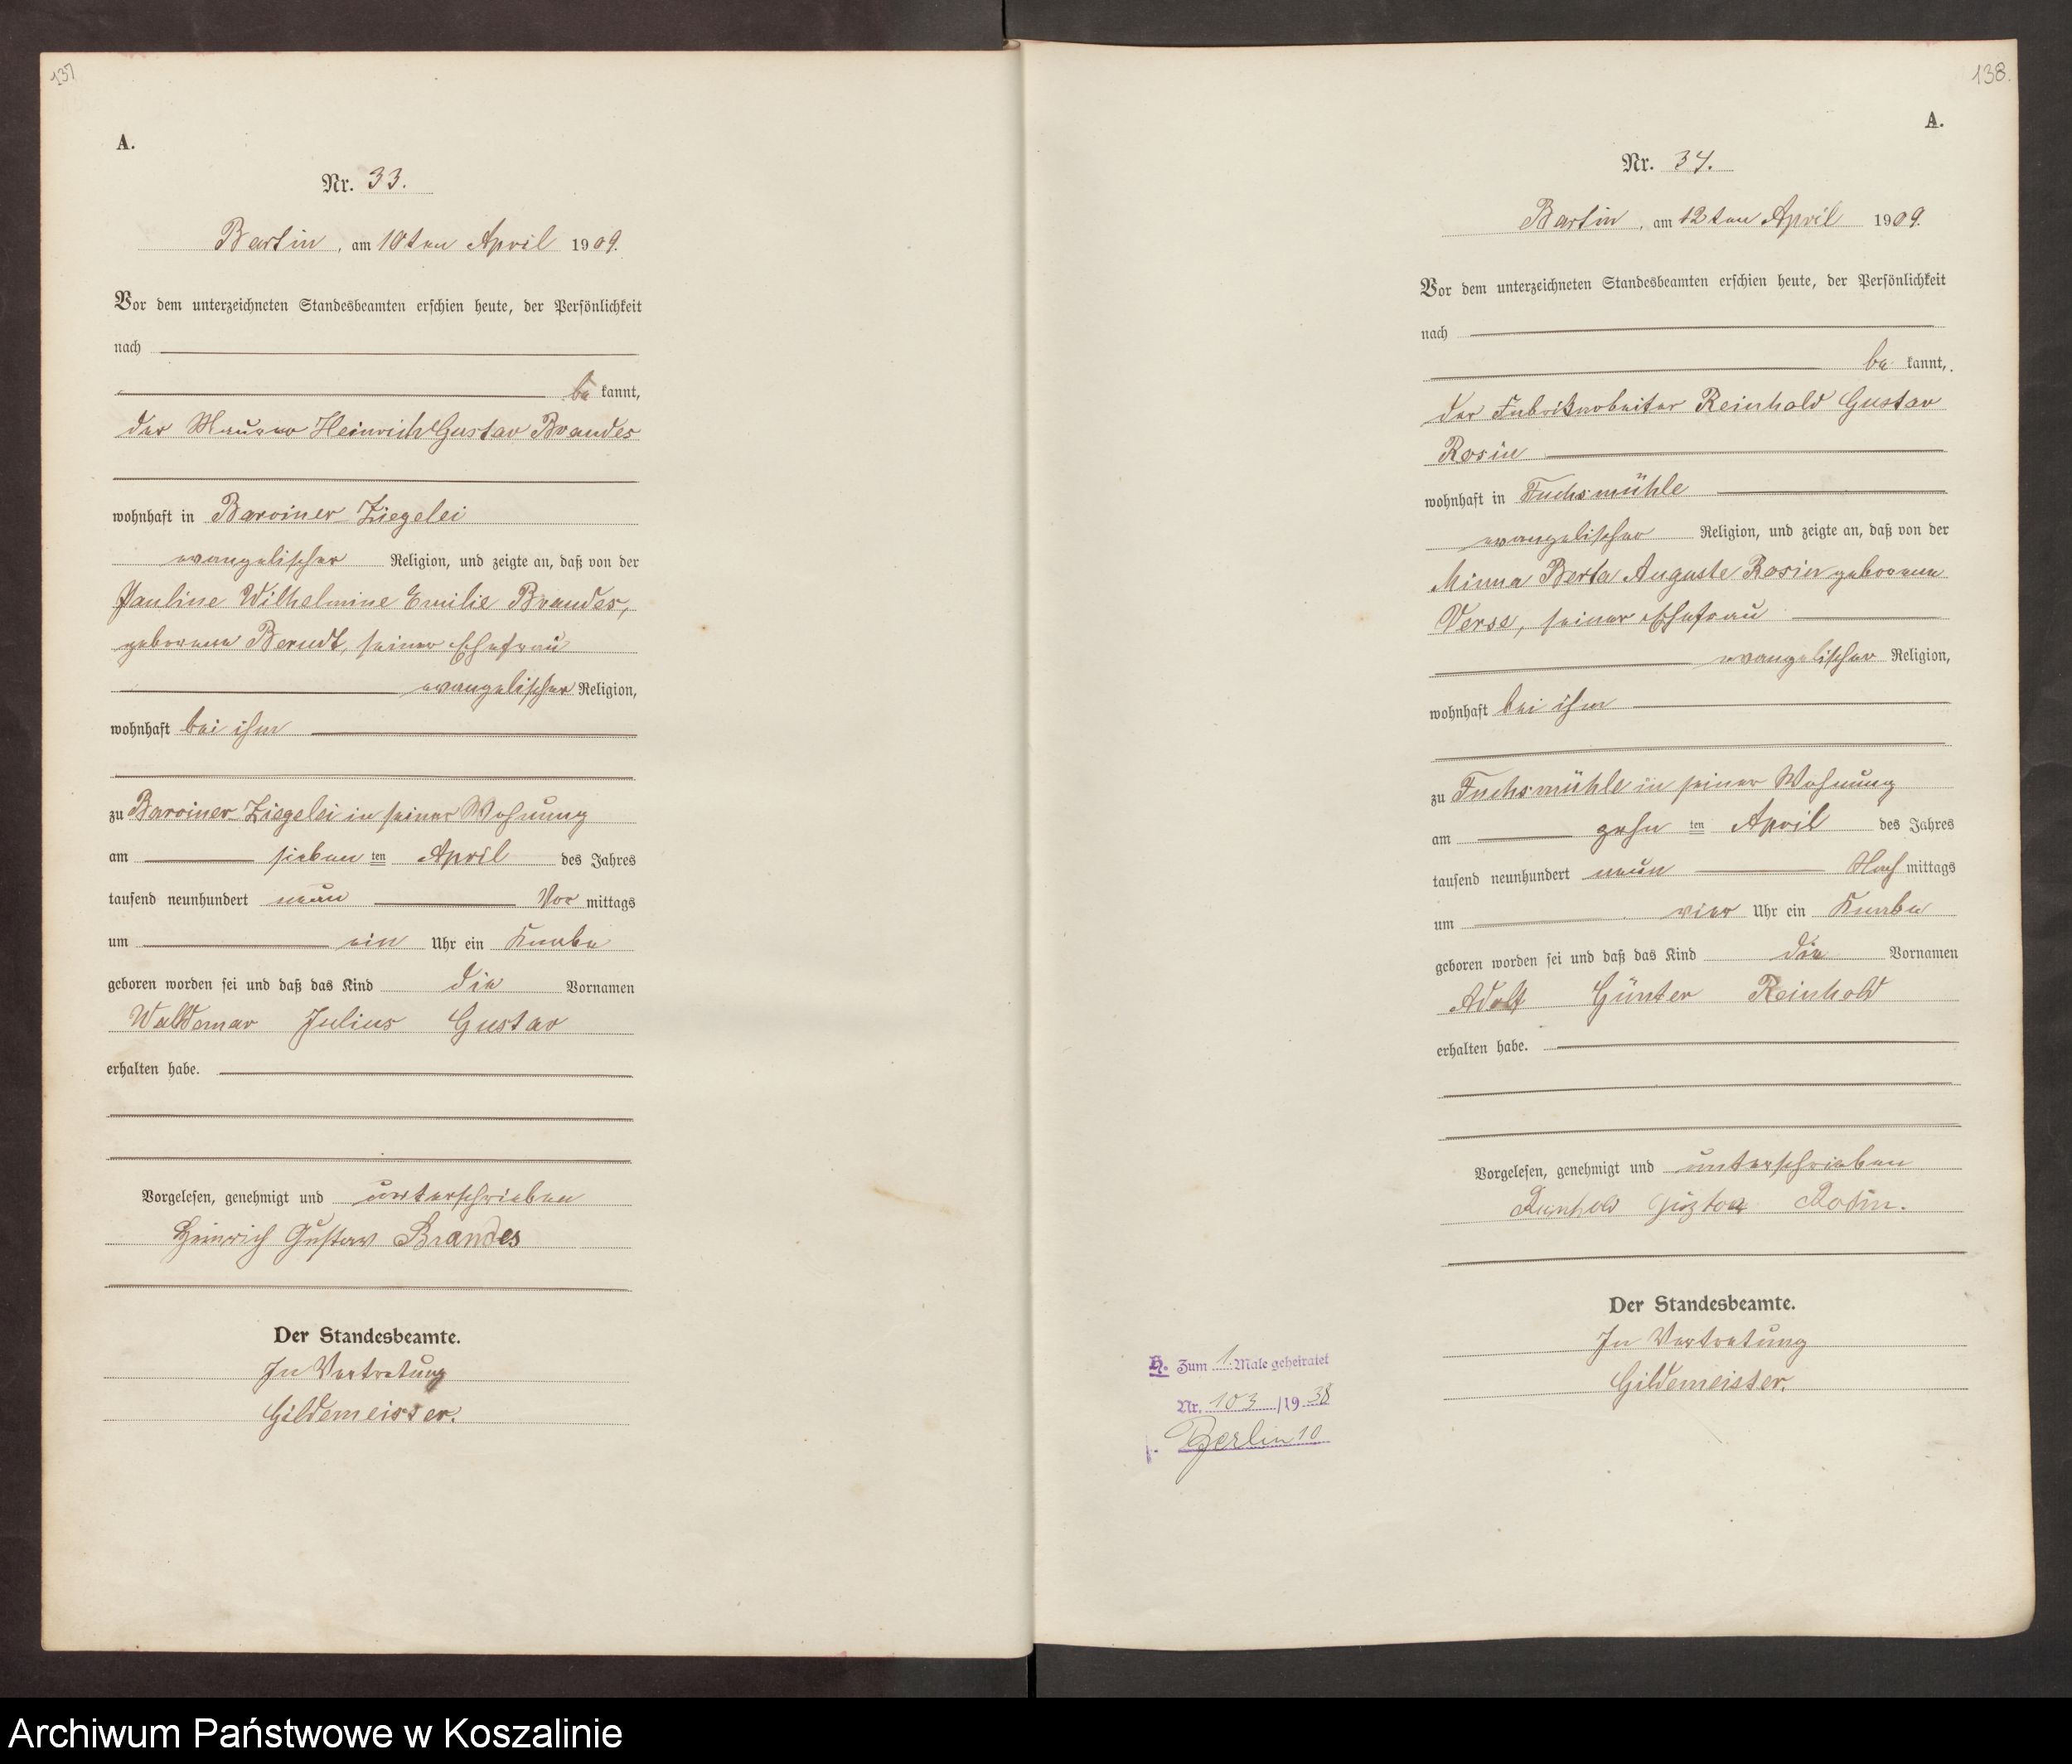 137
A.
Nr. 33.
Bartin, am 10ten April 1909.
Vor dem unterzeichneten Standesbeamten erschien heute, der Persönlichkeit
nach
be kannt,
der Maurer Heinrich Gustav Brandes
wohnhaft in Barviner Ziegelei
evangelischer Religion, und zeigte an, daß von der
Pauline Wilhelmine Emilie Brandes,
geborene Berndt, seiner Ehefrau
evangelischer Religion,
wohnhaft bei ihm
zu Barviner Ziegelei in seiner Wohnung
am sieben ten April des Jahres
tausend neunhundert neun Vor mittags
um ein Uhr ein Knabe
geboren worden sei und daß das Kind die Vornamen
Waldemar Julius Gustav
erhalten habe.
Vorgelesen, genehmigt und unterschrieben
Heinrich Gustav Brandes
Der Standesbeamte.
In Vertretung
Gildemeister.
138.
A.
Nr. 34.
Bartin, am 12ten April 1909.
Vor dem unterzeichneten Standesbeamten erschien heute, der Persönlichkeit
nach
be kannt,
der Fabrikarbeiter Reinhold Gustav
Rosin
wohnhaft in Fuchsmühle
evangelischer Religion, und zeigte an, daß von der
Minna Berta Auguste Rosin geborene
Verse, seiner Ehefrau
evangelischer Religion,
wohnhaft bei ihm
zu Fuchsmühle in seiner Wohnung
am zehn ten April des Jahres
tausend neunhundert neun Nach mittags
um vier Uhr ein Knabe
geboren worden sei und daß das Kind die Vornamen
Adolf Günter Reinhold
erhalten habe.
Vorgelesen, genehmigt und unterschrieben
Reinhold Gustav Rosin.
Der Standesbeamte.
In Vertretung
Gildemeister.
H. Zum 1. Male geheiratet
Nr. 103 /19 38
Berlin 10
Archiwum Państwowe w Koszalinie